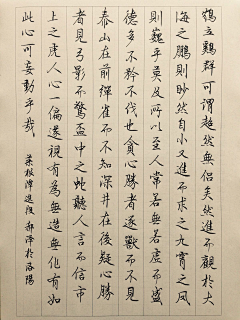 鶴立鷄群可謂超然無侶矣然進而觀於大
海之鵬則眇然自小又進而求之九霄之鳳
則巍乎莫及所以至人常若無若虛而盛
德多不矜不伐也貪心勝者逐獸而不見
泰山在前彈雀而不知深井在後疑心勝
者見弓影而驚盃中之蛇聽人言而信市
上之虎人心一偏遂視有為無造無作有如
此心可妄動乎哉 菜根譚選段 郝澤於洛陽